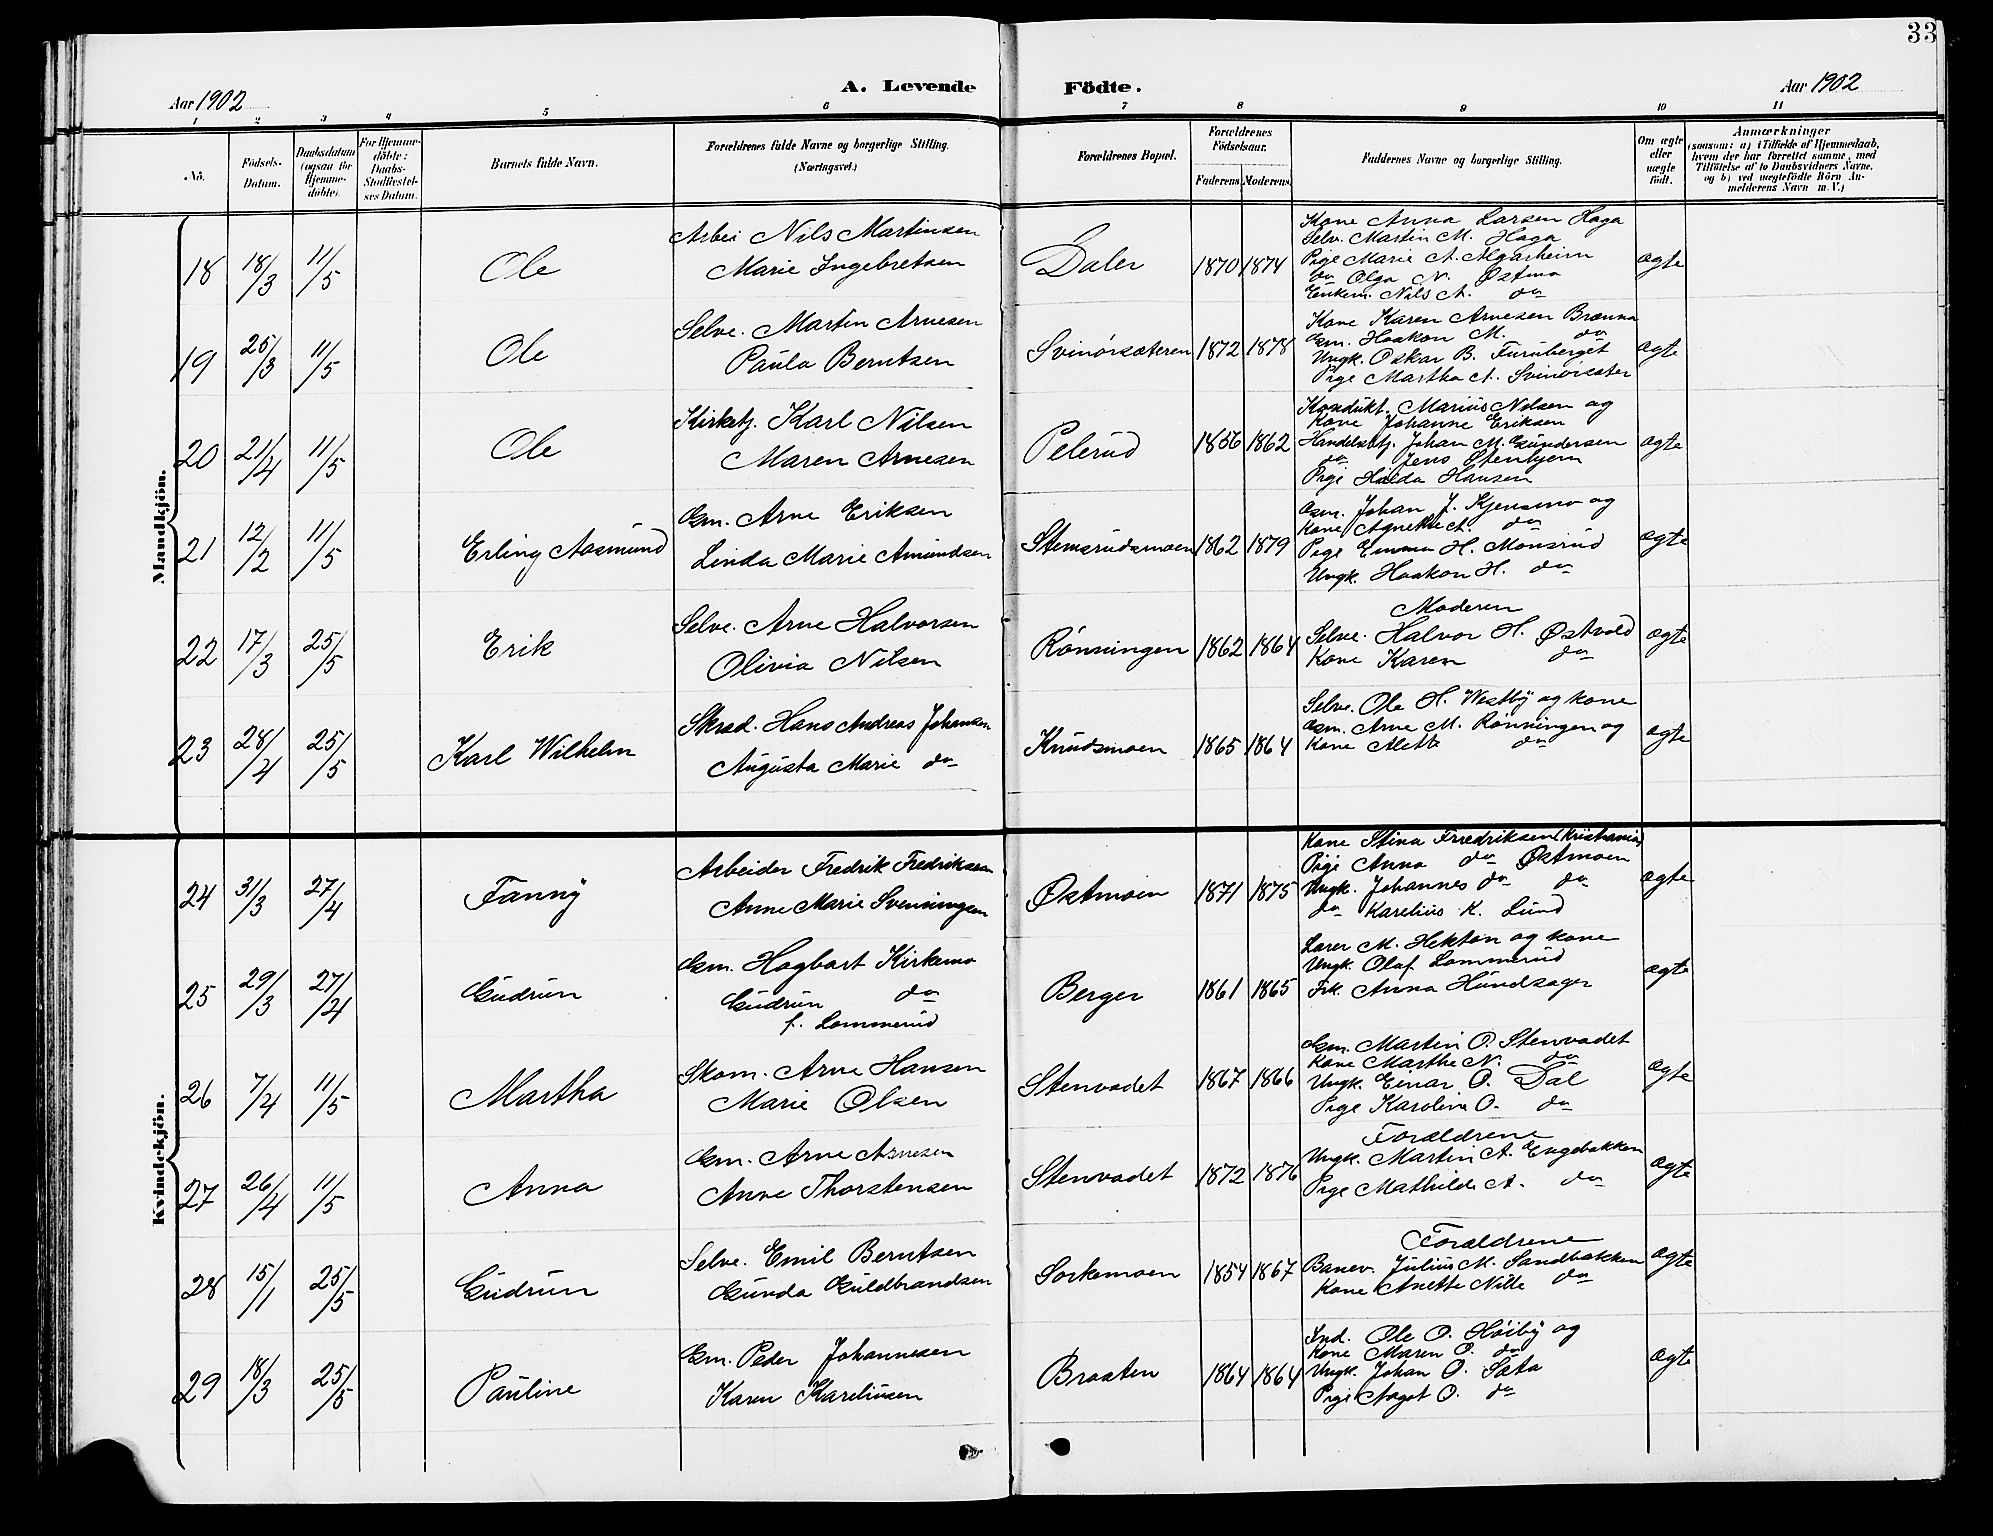 33
Aar 1902
A. Levende
Födte.
Aar 1902
1 2 3 4 5 6 7 8 9 10 11
No.
Födsels-Datum.
Daabsdatum (ogsaa for Hjemmedöbte).
For Hjemmedöbte: Daabs-Stadfæstelses Datum.
Barnets fulde Navn.
Forældrenes fulde Navne og borgerlige Stilling.
(Næringsvei.)
Forældrenes Bopæl.
Forældrenes Födselsaar.
Faderens Moderens
Faddernes Navne og borgerlige Stilling.
Om ægte eller uægte födt.
Anmærkninger
(saasom: a) i Tilfælde af Hjemmedaab, hvem der har forrettet samme, med Tilföielse af to Daabsvidners Navne, og b) ved uægtefödte Börn Anmelderens Navn m. V.)
Mandkjön.
18 18/3 11/5 Ole
Arbei Nils Martinsen
Marie Ingebretsen
Daler 1870 1874
Kone Anna Larsen Haga
Selv. Martin M. Haga
Pige Marie A. Algarheim
do Olga N. Østmo
Enkem. Nils A. do
ægte
19 25/3 11/5 Ole
Selve. Martin Arnesen
Paula Berntsen
Svinørsæteren 1872 1878
Kone Karen Arnesen Brænna
Gm. Haakon M. do
Ungk. Oskar B. Furuberget
Pige Martha A. Svinørsæter
ægte
20 21/4 11/5 Ole
Kirketj. Karl Nilsen
Maren Arnesen
Pelerud 1856 1862
Kondukt. Marius Nilsen og
Kone Johanne Eriksen
Handelsbtj. Johan M. Gundersen
do Jens Stenhjem
Pige Hilda Hansen
ægte
21 12/2 11/5 Erling Aasmund
Gm. Arne Eriksen
Linda Marie Amundsen
Stemsrudsmoen 1862 1879
Gm. Johan J. Kjensmo og
Kone Agnethe A. do
Pige Emma H. Monsrud
Ungk. Haakon H. do
ægte
22 17/3 25/5 Erik
Selve. Arne Halvorsen
Olivia Nilsen
Rønningen 1862 1864
Moderen
Selve. Halvor H. Østvold
Kone Karen do
ægte
23 28/4 25/5 Karl Wilhelm
Skræd. Hans Andreas Johansen
Augusta Marie do
Knudsmoen 1865 1864
Selve. Ole H. Westby og kone
Gm. Arne M. Rønningen og
Kone Alette do
ægte
Kvindekjön.
24 31/3 27/4 Fanny
Arbeider Fredrik Fredriksen
Anne Marie Svenningsen
Østmoen 1871 1875
Kone Stina Fredriksen (Kristiania)
Pige Anna do Østmoen
Ungk. Johannes do do
do Karelius K. Lund
ægte
25 29/3 27/4 Gudrun
Gm. Hagbart Kirkemo
Gudrun do
f. Lommerud
Berger 1861 1865
Lærer M. Hekton og kone
Ungk. Olaf Lommerud
Frk. Anna Hundsager
ægte
26 7/4 11/5 Martha
Skom. Arne Hansen
Marie Olsen
Stenvadet 1867 1866
Gm. Martin O. Stenvadet
Kone Marthe N. do
Ungk. Einar O. Dal
Pige Karoline O. do
ægte
27 26/4 11/5 Anna
Gm. Arne Arnesen
Anne Thorstensen
Stenvadet 1872 1876
Forældrene
Ungk. Martin A. Engebakken
Pige Mathilde A. do
ægte
28 15/1 25/5 Gudrun
Selve. Emil Berntsen
Gunda Guldbrandsen
Sorkemoen 1854 1867
Forældrene
Banev. Julius M. Sandbakken
Kone Anette Nille do
ægte
29 18/3 25/5 Pauline
Gm. Peder Johannesen
Karen Kareliusen
Braaten 1864 1864
Ind. Ole O. Høiby og
Kone Maren O. do
Ungk. Johan O. Sata
Pige Aagot O. do
ægte